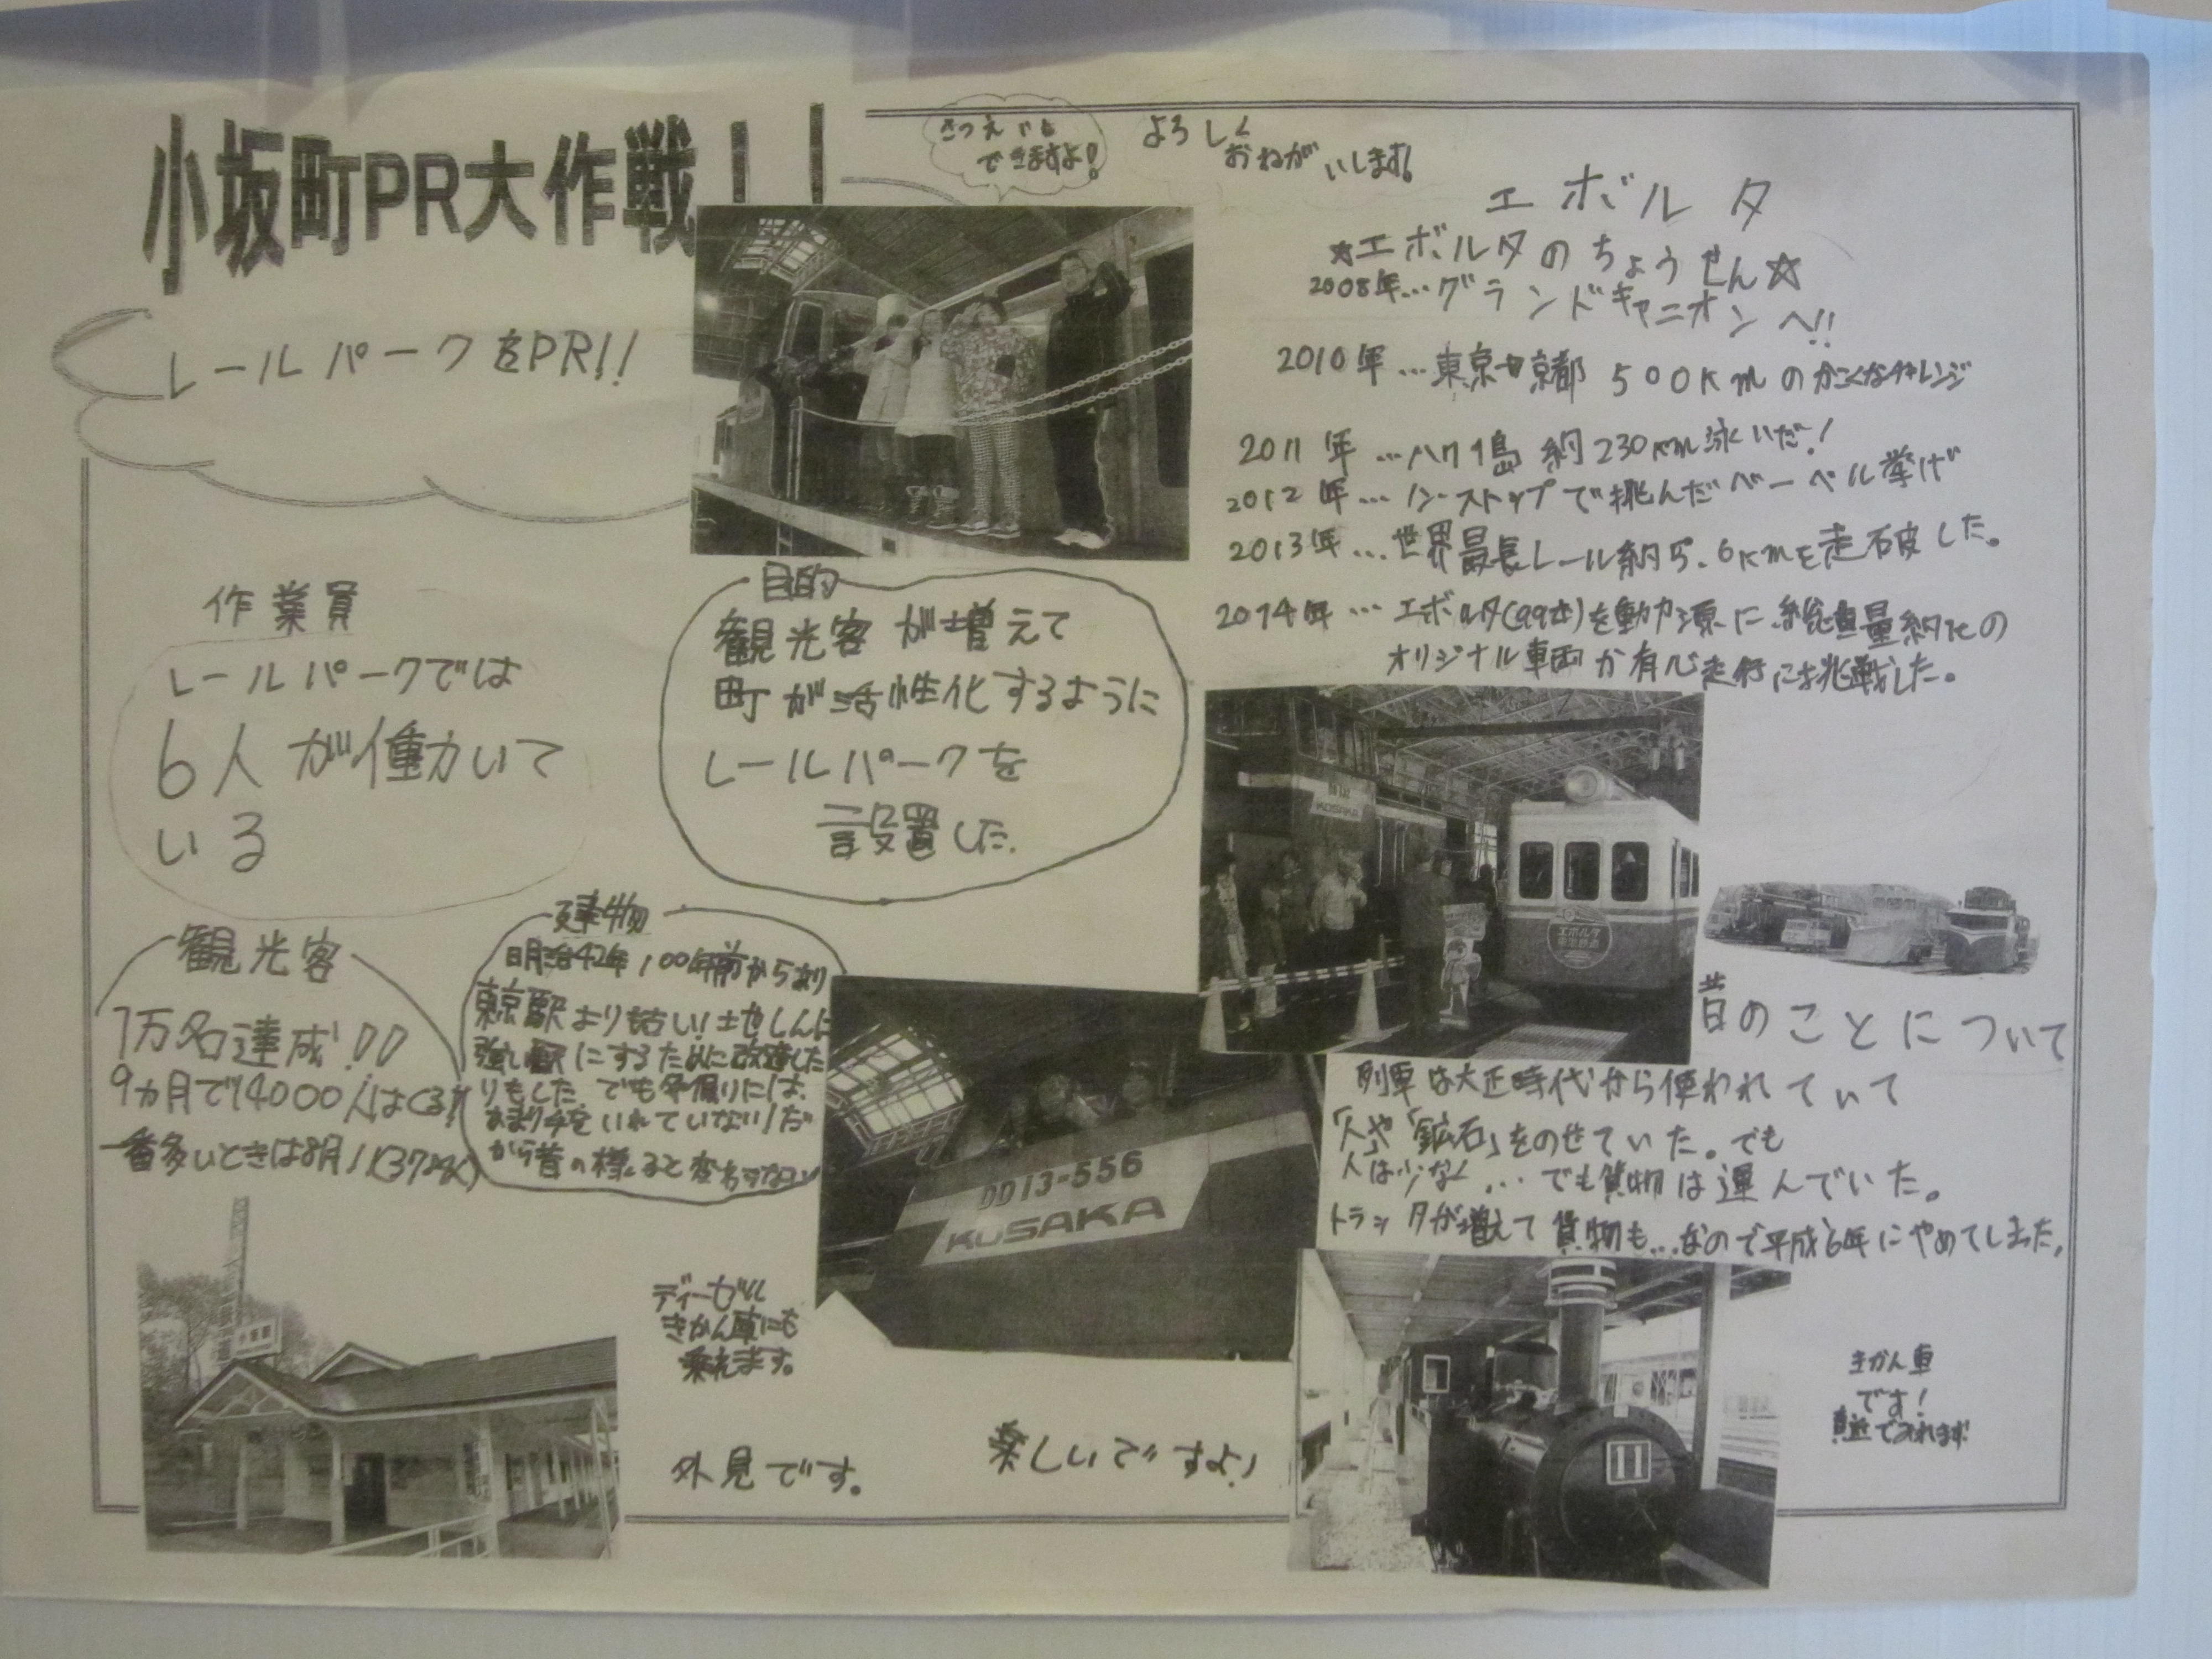 小坂町PR大作戦!!
レールパークをPR!!
さつえいも
できますよ!
よろしく
おねがいします!
エボルタ
☆エボルタのちょうせん☆
2008年…グランドキャニオンへ!!
2010年…東京〜京都 500kmのかこくなチャレンジ
2011年…ハワイ島 約230km泳いだ!
2012年…ノンストップで挑んだバーベル挙げ
2013年…世界最長レール約5.6kmを走破した。
2014年…エボルタ(99本)を動力源に総重量約1tの
オリジナル車両が有人走行に挑戦した。
作業員
レールパークでは
6人が働いて
いる
目的
観光客が増えて
町が活性化するように
レールパークを
設置した.
観光客
1万名達成!!
9カ月で14000人はくる!
一番多いときは8月!
建物
明治42年100年前からあり
東京駅よりも古い!地しんに
強い駅にするために改造した
りもした。でも冬囲りには、
あまり手をいれていない!だ
から昔の様
KOSAKA
エボルタ
昔のことについて
列車は大正時代から使われていて
「人」や「鉱石」をのせていた。でも
人は少なく…でも貨物は運んでいた。
トラックが増えて貨物も…なので平成6年にやめてしまった。
DD13-556
KOSAKA
ディーゼル
きかん車にも
乗れます。
外見です。
楽しいですよ!
11
きかん車
です!
真近でみれます